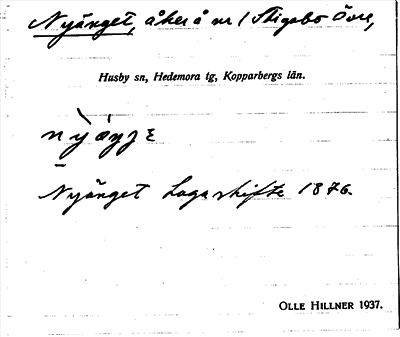 Nyänget, åker å nr 1 Stigsbo Övre,
Husby sn, Hedemora tg, Kopparbergs län.
Nyänget Laga skifte 1876.
OLLE HILLNER 1937.